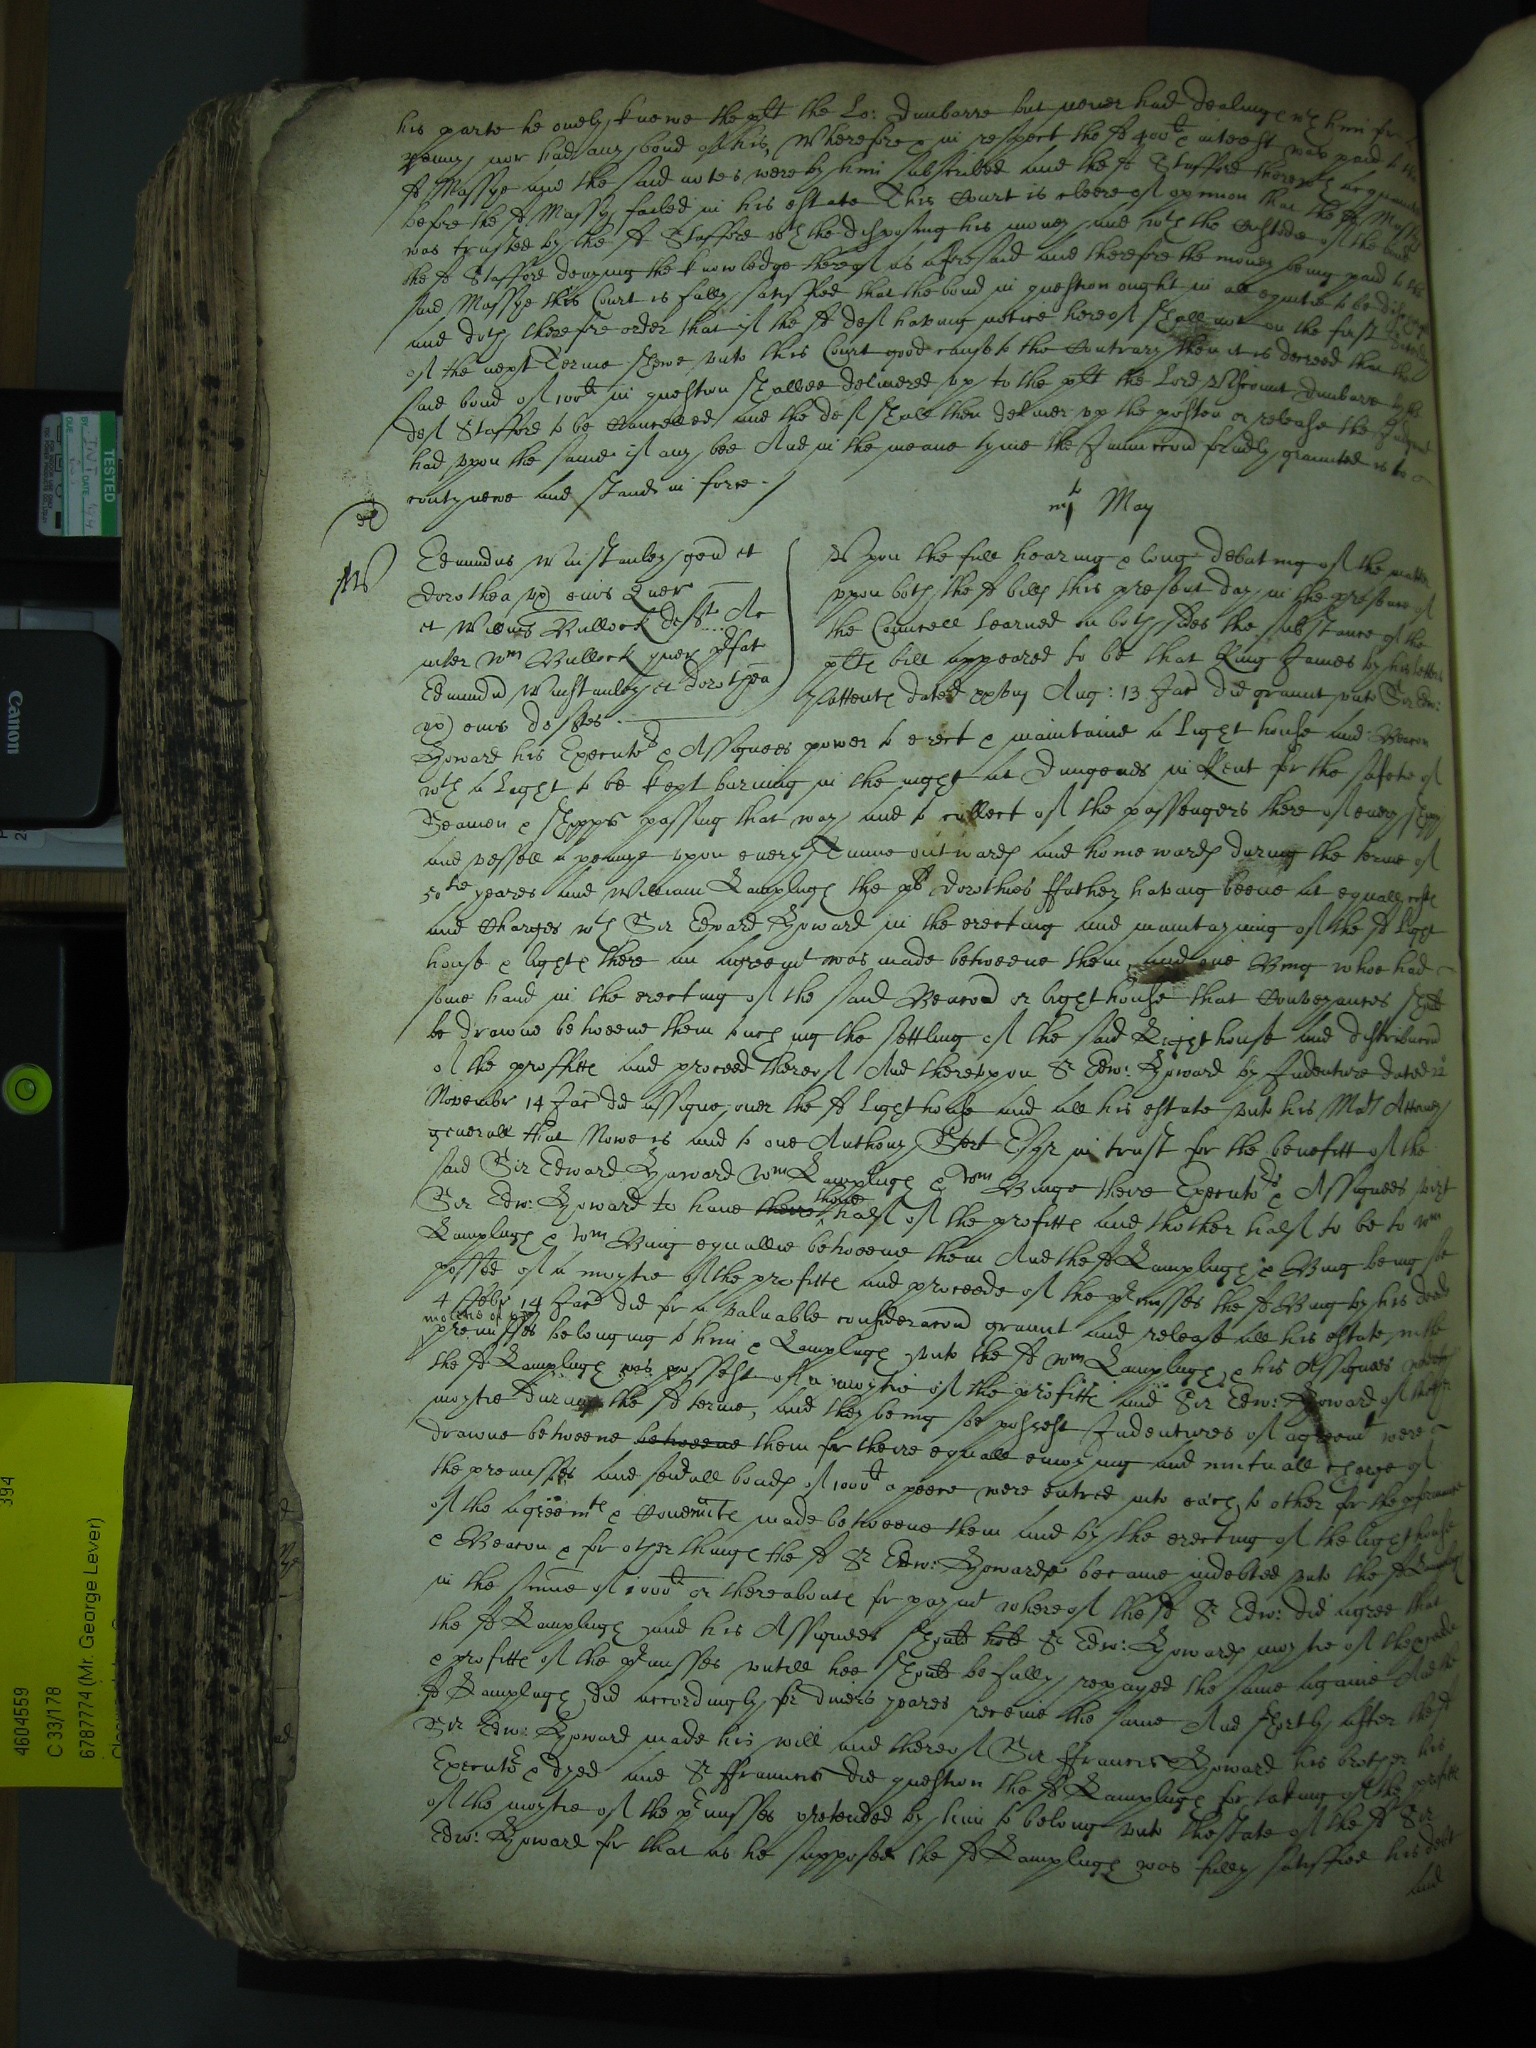 his parte he onely knewe the plt the Lo: Dunbarre but never had dealing wth him for
nor had any bond of his, Wherefore & in respect the sd 400li & interest was paid to the
sd Massye and the said notes were by him subscribed and the sd Stafford therewth acquainted
before the sd Massy failed in his estate This Court is cleere of opinion that the sd Massye
was trusted by the sd Stafford wth the disposing his money and wth the Custodie of the bond
the sd Stafford denying the knowledge thereof as aforesaid and therefore the money being paid to the
said Massye this Court is fully satisfied that the bond in question ought in all equitie to be
and doth therefore order that if the sd deft having notice hereof shall not on the first
of the next Terme shewe unto this Court good cause to the Contrary then it is decreed that the
said bond of 100li in question shalbee delivered up to the plt the Lord Viscount Dunbarre by the
deft Stafford to be Cancelled and the deft shall then deliver up the or release the Judgmt
had upon the same if any bee And in the meane tyme the Iniunccon formerly graunted is to
contynewe and stand in force
May
Edmundus Winstanley gen et
Dorothea ux eius Quer
et Willms Bullock defts Ac
inter Wm Bullock quer prfat
Edmund Winstanley et Dorothea
ux eius deftes
Upon the full hearing & long debating of the matter
upon both the sd bills this present day in the presence of
the Councell Learned on both sides the substance of the
plts bill appeared to be that King James by his letters
Pattents dated Aug: 13 Jac did graunt unto Sir Edw:
Howard his Executors & Assignees power to erect & maintaine a Light house and Beacon
wth a Light to be kept burning in the night at Dungenes in Kent for the safetie of
Seamen & Shipps passing that way and to collect of the passengers there of every shipp
and vessell a penye upon every Tunne outwards and homewards during the terme of
50tie yeares and William Lamplugh the plt Dorothies ffather having beene at equall costs
and Charges wth Sir Edward Howard in the erecting and maintayning of the sd Light
house & lights there an agreemt was made betweene them and one Bing whoe had
some hand in the erecting of the said Beacon or lighthouse that Conveyances should
be drawne betweene them touching the settling of the said Lighthouse and distribucon
of the proffitts and proceed thereof And thereupon Sr Edw: Howard by Indenture dated 22
Novembr 14 Jac did assigne over the sd Lighthouse and all his estate unto his Mats Attorney
generall that Nowe is and to one Anthony Esqr in trust for the benefitt of the
said Sir Edward Howard Wm Lamplugh & Wm Binge theire Executors & Assignees vizt
Sir Edw: Howard to have theire thone half of the profitts and thother half to be to Wm
Lamplugh & Wm Bing equallie betweene them And the sd Lamplugh & Bing being soe
possed of a moytie of the profitts and proceeds of the prmisses the sd Bing by his deed
4 ffebr 14 Jac did for a valuable consideracon graunt and release all his estate in the
moitie of the
premisses belonging to him & Lamplugh unto the sd Wm Lamplugh & his Assignees whereby
the sd Lamplugh was possest of a moytie of the profitts and Sir Edw: Howard of thother
moytie during the sd terme, and they being soe possest Indentures of agreemt were
drawne betweene betweene them for theire equall enioying and mutuall charge of
the premisses and severall bonds of 1000li a peece were entred into each to other for the performance
of the agreemts & Covenants made betweene them and by the erecting of the lighthouse
& Beacon & for other things the sd Sr Edw: Howarde became indebted unto the sd Lamplugh
in the summe of 1000li or thereabouts for paymt whereof the sd Sr Edw: did agree that
the sd Lamplugh and his Assignees should hold Sr Edw: Howards moytie of the
& profitts of the prmisses untill hee should be fully repayed the same againe And the
sd Lamplugh did accordingly for divers yeares receive the same And shortly after the sd
Sir Edw: Howard made his will and thereof Sir ffrancis Howard his brother his
Executor & dyed and Sr ffrancis did question the sd Lamplugh for taking of the profitts
of the moytie of the prmisses pretended by him to belong unto thestate of the sd Sir
Edw: Howard for that as he supposed the sd Lamplugh was fully satisfied his debt
and
4604559
C 33/178
6787774 (Mr. George Lever)
394
Canon
TESTED